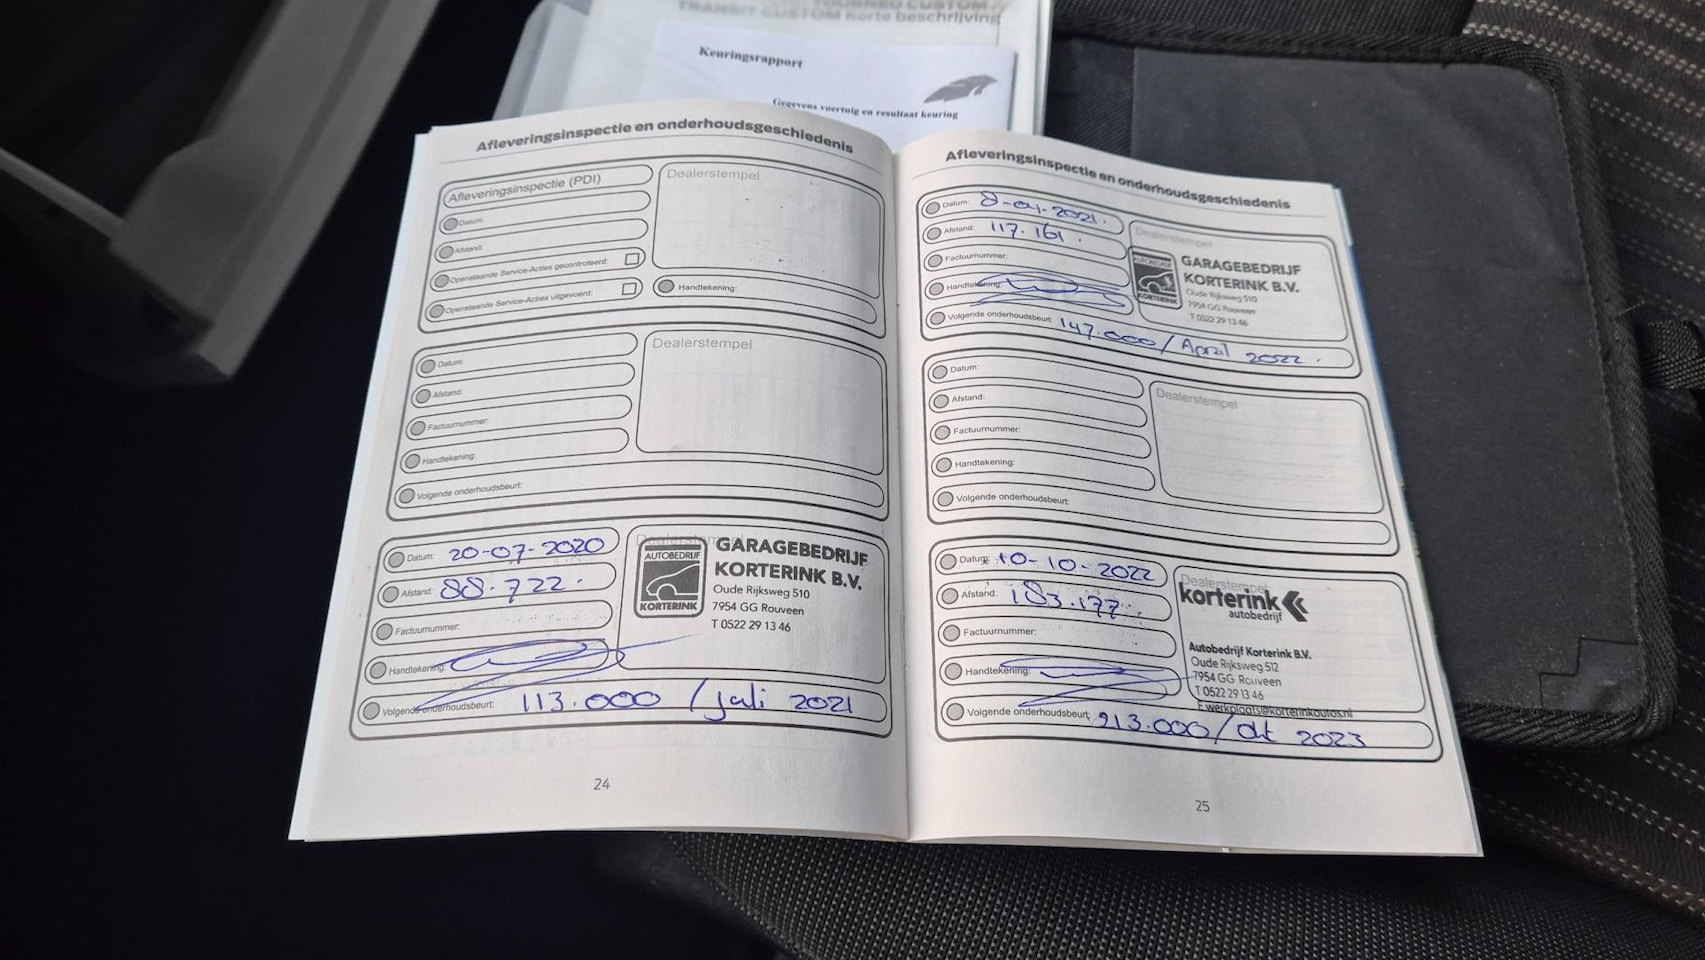 TOURNEO CUSTOM /
TRANSIT CUSTOM Korte beschrijving
Keuringsrapport
Gegevens voertuig en resultaat keuring
Afleveringsinspectie en onderhoudsgeschiedenis
Afleveringsinspectie (PDI)
Datum:
Afstand:
Openstaande Service-Acties gecontroleerd:
Openstaande Service-Acties uitgevoerd:
Dealerstempel
Handtekening:
Datum:
Afstand:
Factuurnummer:
Handtekening:
Volgende onderhoudsbeurt:
Dealerstempel
Datum: 20-07-2020
Afstand: 88.722.
Factuurnummer:
Handtekening:
Volgende onderhoudsbeurt: 113.000 / juli 2021
Dealerstempel
AUTOBEDRIJF
KORTERINK
GARAGEBEDRIJF
KORTERINK B.V.
Oude Rijksweg 510
7954 GG Rouveen
T 0522 29 13 46
24
Afleveringsinspectie en onderhoudsgeschiedenis
Datum: 8-04-2021.
Afstand: 117.161.
Factuurnummer:
Handtekening:
Volgende onderhoudsbeurt: 147.000 / April 2022.
Dealerstempel
AUTOBEDRIJF
KORTERINK
GARAGEBEDRIJF
KORTERINK B.V.
Oude Rijksweg 510
7954 GG Rouveen
T 0522 29 13 46
Datum:
Afstand:
Factuurnummer:
Handtekening:
Volgende onderhoudsbeurt:
Dealerstempel
Datum: 10-10-2022
Afstand: 183.177.
Factuurnummer:
Handtekening:
Volgende onderhoudsbeurt: 213.000 / okt 2023
Dealerstempel
korterink
autobedrijf
Autobedrijf Korterink B.V.
Oude Rijksweg 512
7954 GG Rouveen
T 0522 29 13 46
E werkplaats@korterinkautos.nl
25